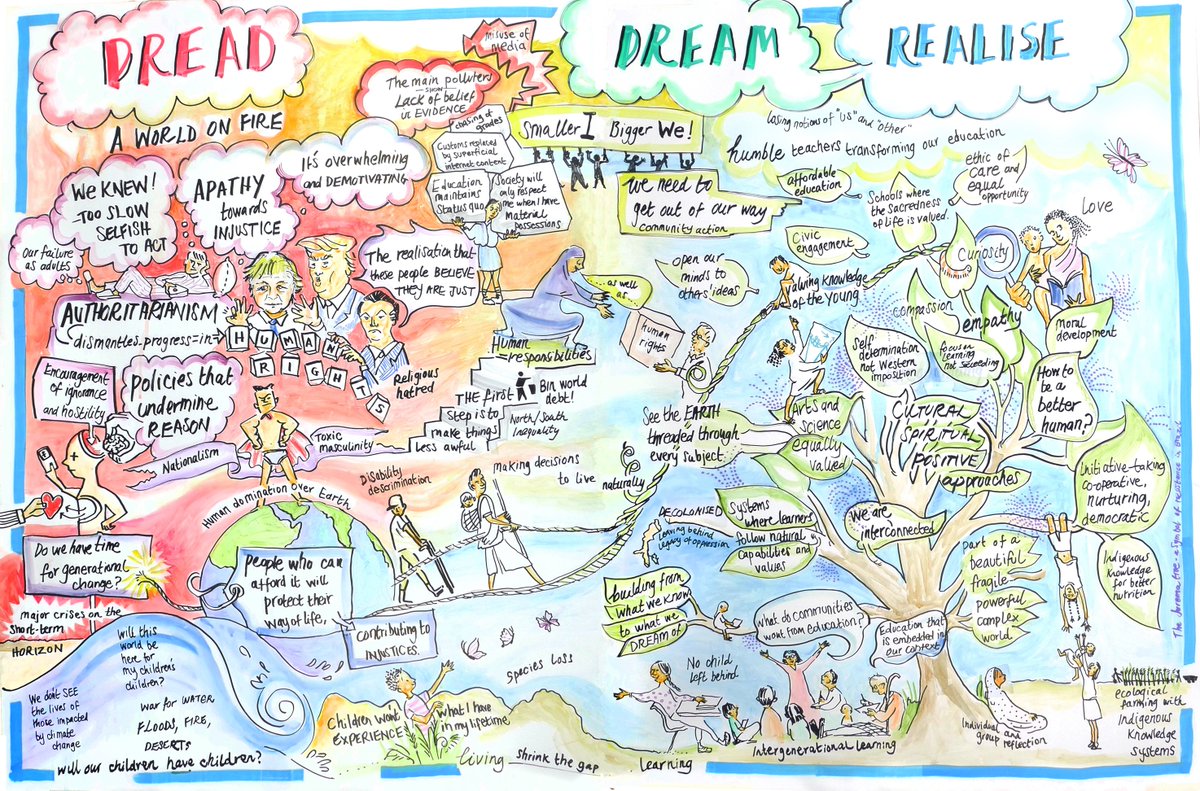 DREAD
DREAM
REALISE
A WORLD ON FIRE
misuse of
media
The main polluters
SHOW
Lack of belief
in EVIDENCE
We KNEW!
TOO SLOW
SELFISH
TO ACT
APATHY
towards
INJUSTICE
It's overwhelming
and DEMOTIVATING
Our failure
as adults
chasing of
grades
Customs replaced
by superficial
internet content
Education
maintains
Status quo
Society will
only respect
me when I have
Material
possessions
The realisation that
these people BELIEVE
THEY ARE JUST
AUTHORITARIANISM
dismantles-progress=in=
HUMAN
RIGHTS
Religious
hatred
Encouragement
of ignorance
and hostility
policies that
undermine
REASON
Nationalism
Toxic
masculinity
Human domination over Earth
Do we have time
for generational
change?
major crises on the
short-term
HORIZON
people who can
afford it will
protect their
way of life,
contributing to
INJUSTICES.
Disability
descrimination
making decisions
to live
naturally
Human
=responsibilities
THE first
Step is to
make things
Less awful
Bin world
debt!
North/South
Inequality
Will this
world be
here for
my children's
children?
We don't SEE
the lives of
those impacted
by climate
change
War for WATER
FLOODS, FIRE,
DESERTS
will our children have children?
Children won't
EXPERIENCE
what I have
in my lifetime
species loss
living
shrink the gap
learning
Smaller I Bigger We!
We need to
get out of our way
community action
... as well
as ...
human
rights
open our
minds to
others' ideas
Losing notions of "us" and "other"
humble teachers transforming our education
affordable
education
Civic
engagement
Schools where
the Sacredness
of Life is valued.
ethic of
care and
equal
opportunity
Love
Curiosity
valuing knowledge
of the young
compassion
empathy
moral
development
Self
determination
not Western
imposition
focus on
learning
not succeeding
How to
be a
better
human?
See the EARTH
threaded through
every subject
Arts and
science
equally
valued
CULTURAL
SPIRITUAL
POSITIVE
approaches
Initiative-taking
co-operative,
nurturing,
democratic
DECOLONISED
leaving behind
legacy of oppression
Systems
where learners
follow natural
capabilities and
values
We are
interconnected
part of a
beautiful
fragile
powerful
complex
world
Indigenous
knowledge
for better
nutrition
building from
what we know
to what we
DREAM OF
what do communities
want from education?
Education that
is embedded in
our context
No child
left behind
Intergenerational learning
Individual
group reflection
ecological
farming with
Indigenous
Knowledge
systems
The Jurema tree - a symbol of resistance in Brazil